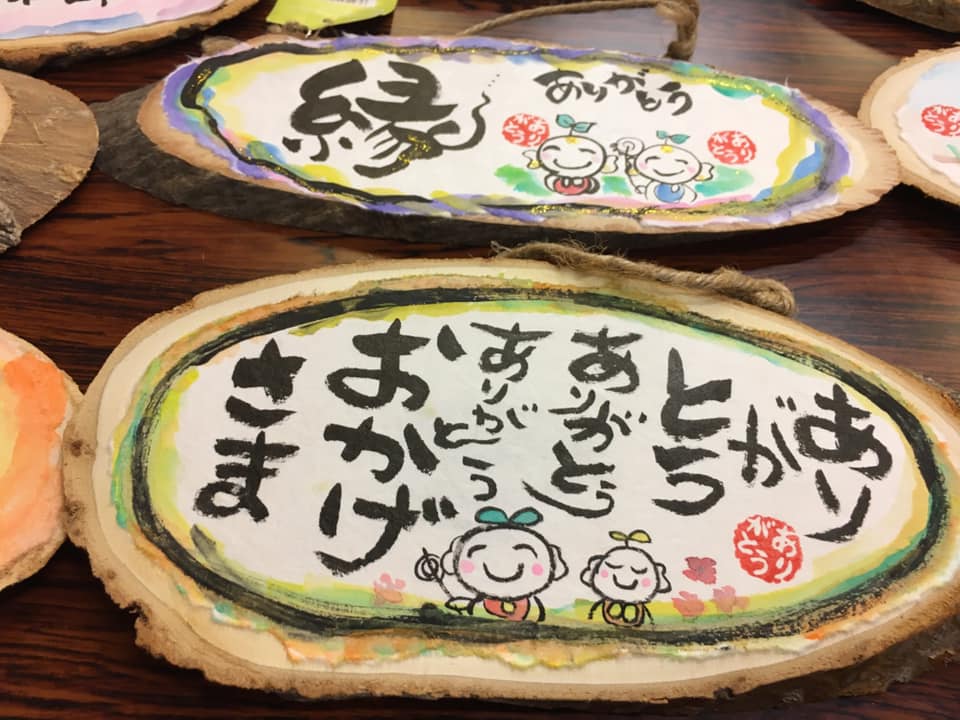 縁
ありがとう
ありがとう
ありがとう
ありがとう
あり
が
とう
ありがとう
ありがとう
おかげ
さま
ありがとう